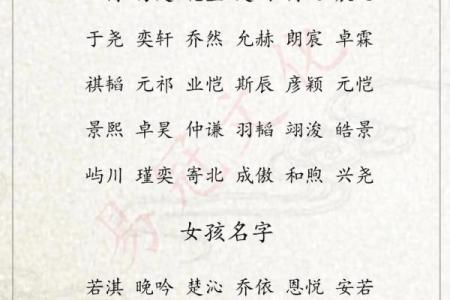 于尧 奕轩 乔然 允赫 朗宸 卓霖
祺韬 元祁 业恺 斯辰 彦颖 元恺
景熙 卓昊 仲谦 羽韬 翊浚 皓景
屿川 瑾奕 寄北 成傲 和煦 兴尧
女孩名字
若淇 晚吟 楚沁 乔依 恩悦 安若